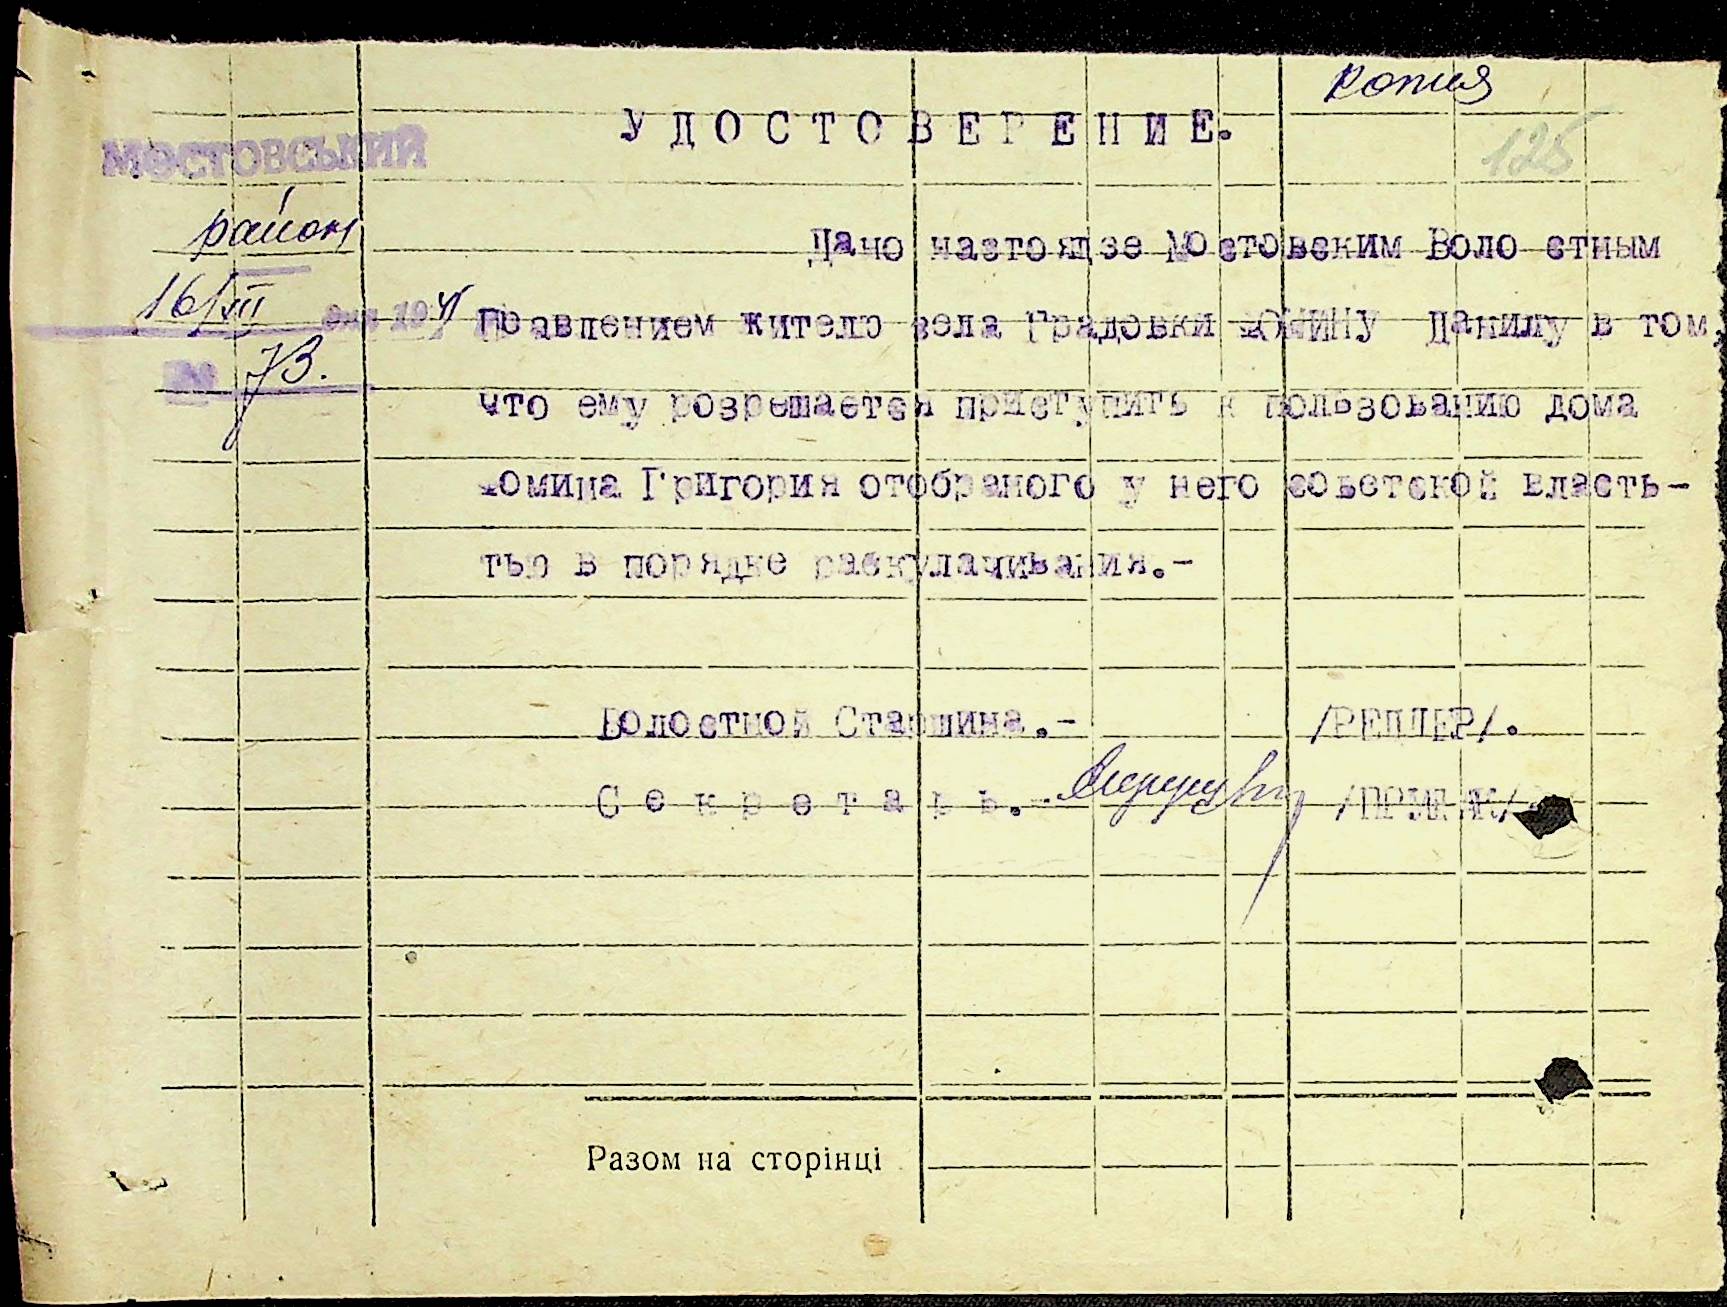 копия
УДОСТОВЕРЕНИЕ.
125
МОСТОВСЬКИЙ
район
16/XII 1941
№ 73.
Дано настоящзе Мостовским Волостным
Правлением жителю села Градовки ФОМИНУ Данилу в том,
что ему розрешается приступить к пользованию дома
Фомина Григория отобраного у него советской власть-
тью в порядке раскулачивания.-
Волостной Старшина.- /РЕПЛЕР/.
Секретарь.-
Разом на сторінці